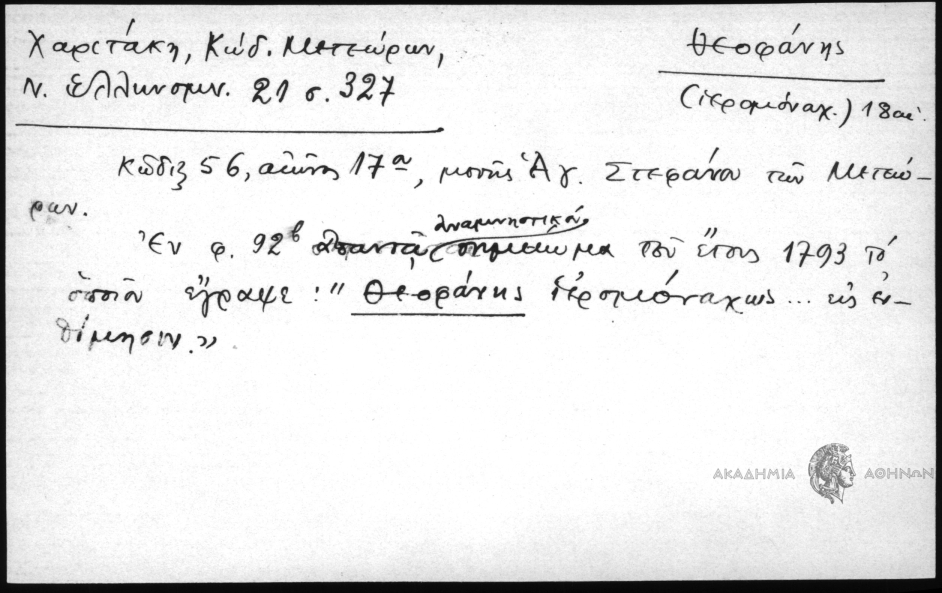 Χαριτάκη, Κώδ. Μετεώρων,
Ν. Ελληνομν. 21 σ. 327
Θεοφάνης
(ἱερομόναχ.) 18 αἰ.
Κῶδιξ 56, αἰῶνος 17ου, μονῆς Ἁγ. Στεφάνου τῶν Μετεώ-
ρων.
ἀναμνηστικόν
Ἐν φ. 92β ἀπαντᾷ σημείωμα τοῦ ἔτους 1793 τό
ὁποῖον ἔγραψε: "Θεοφάνης ἱερομόναχως... εἰς ἐν-
θύμησιν."
ΑΚΑΔΗΜΙΑ ΑΘΗΝΩΝ